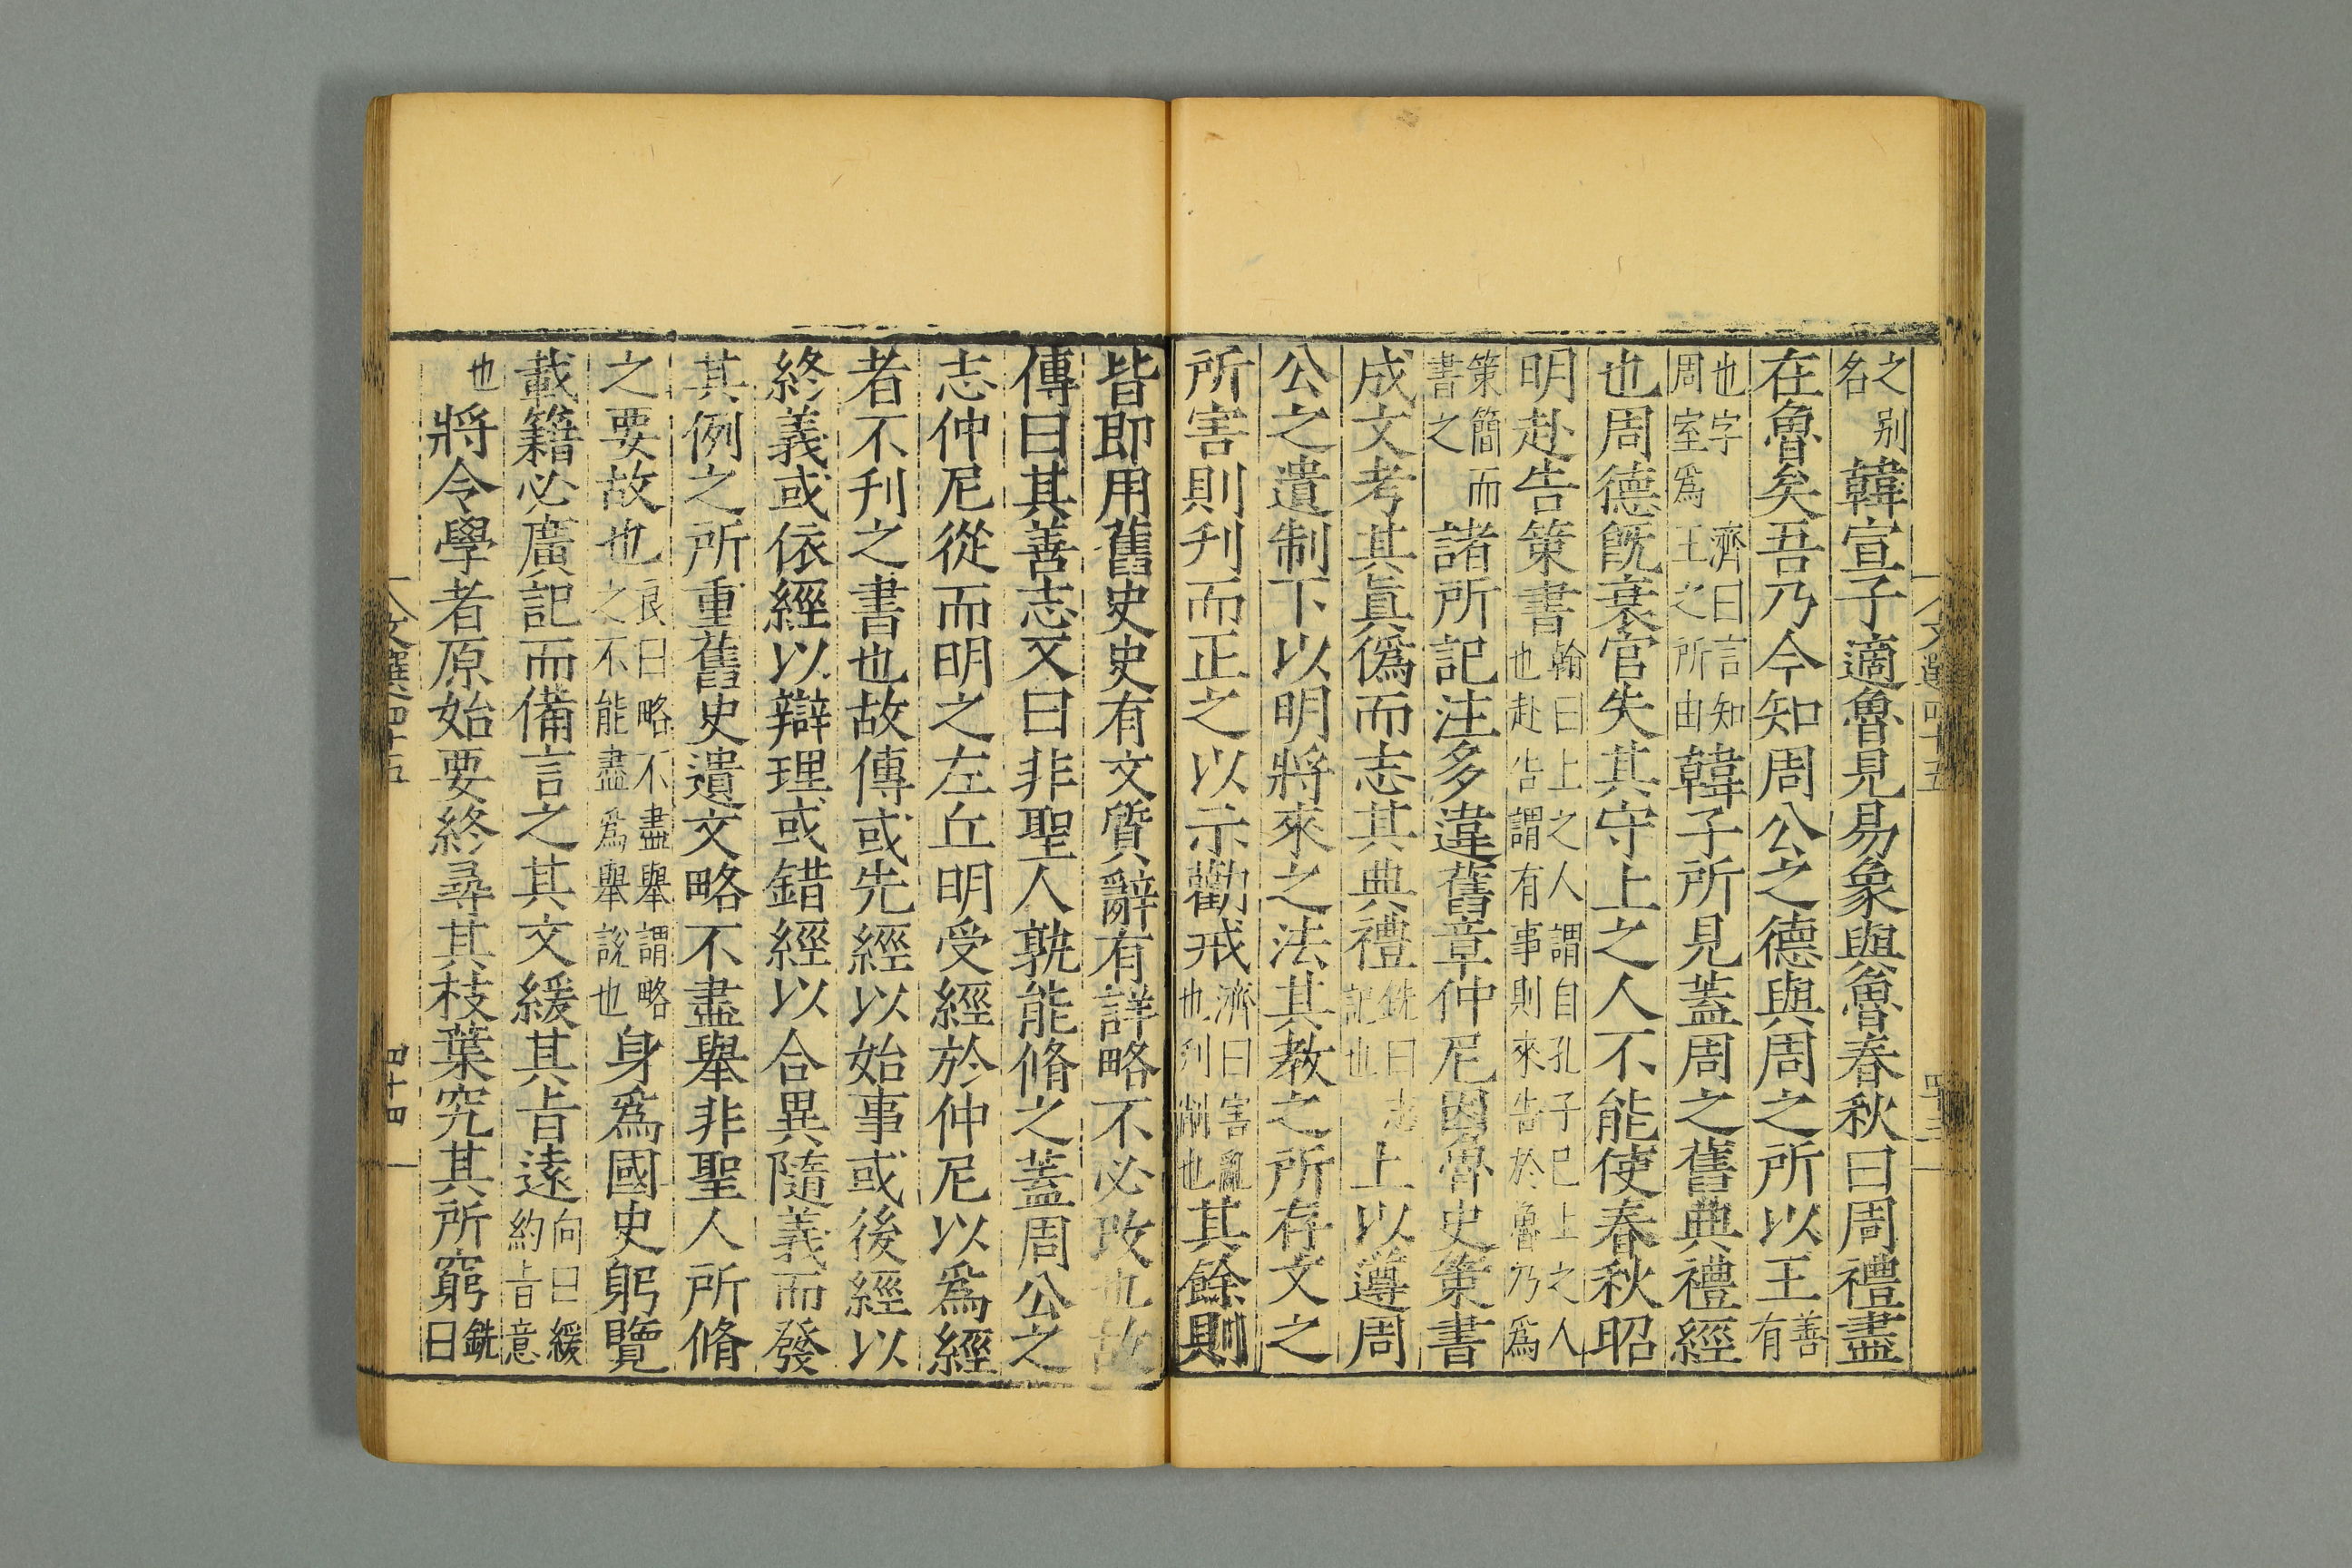 文選四十五 四十三
之別名韓宣子適魯見易象與魯春秋曰周禮盡
在魯矣吾乃今知周公之德與周之所以王善有
也字濟曰言知周室爲王之所由韓子所見蓋周之舊典禮經
也周德旣衰官失其守上之人不能使春秋昭
明赴告策書翰曰上之人謂自孔子已上之人也赴告謂有事則來告於魯乃爲
策簡而書之諸所記注多違舊章仲尼因魯史策書
成文考其眞僞而志其典禮銑曰志記也上以遵周
公之遺制下以明將來之法其教之所存文之
所害則刋而正之以示勸戒濟曰害亂也刋削也其餘則
皆即用舊史史有文質辭有詳略不必改也故
傳曰其善志又曰非聖人孰能脩之蓋周公之
志仲尼從而明之左丘明受經於仲尼以爲經
者不刋之書也故傳或先經以始事或後經以
終義或依經以辯理或錯經以合異隨義而發
其例之所重舊史遺文略不盡舉非聖人所脩
之要故也良曰略不盡舉謂略之不能盡爲舉說也身爲國史躬覽
載籍必廣記而備言之其文緩其旨遠向曰緩約旨意
也將令學者原始要終尋其枝葉究其所窮銑曰
文選四十五 四十四